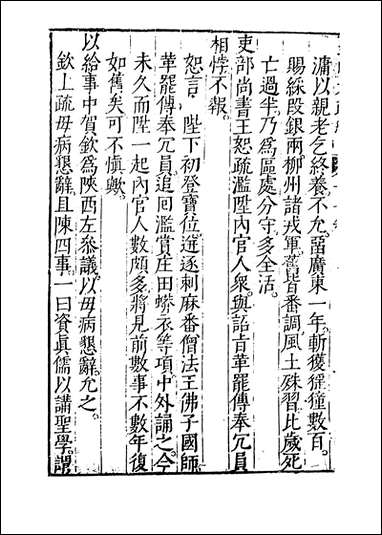 潚以親老乞終養不允留廣東一年斬獲猺獞數百
賜綵段銀兩柳州諸戎軍舊皆番調風土殊習比歲死
亡過半乃爲區處分守多全活
吏部尚書王恕疏濫陞內官人衆與詔㫖革罷傳奉冗員
相悖不報
恕言陛下初登寶位進逐刺麻番僧法王佛子國師
革罷傳奉冗員追囘濫賞庄田蟒衣等項中外誦之今
未久而陞一起內官人數頗多將見前數事不數年復
如舊矣可不愼歟
以給事中賀欽爲陝西左叅議以母病懇辭允之
欽上疏母病懇辭且陳四事一曰資眞儒以講聖學謂